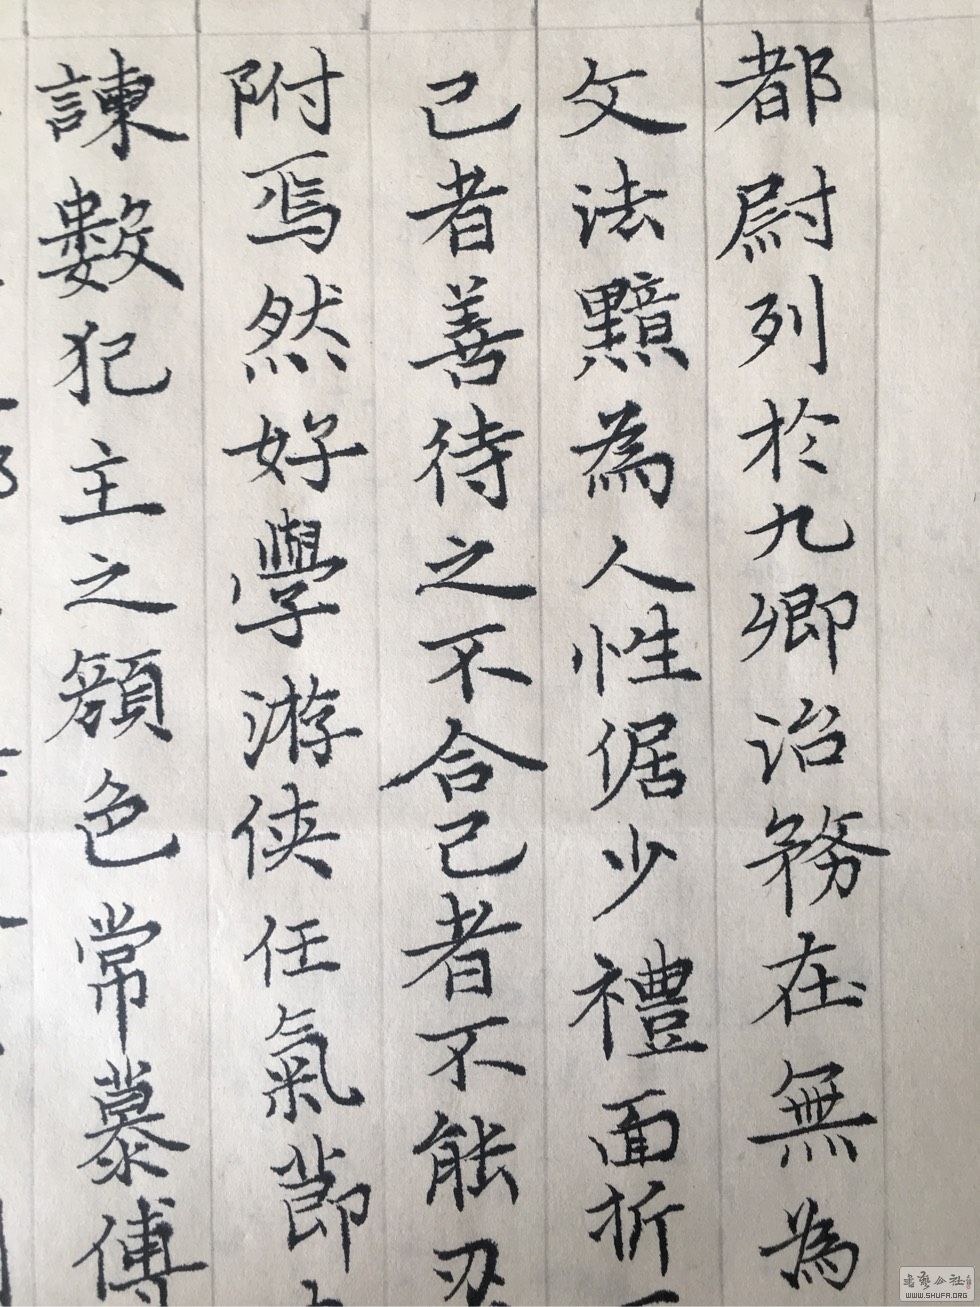 都尉列於九卿治務在無為
文法黯為人性倨少禮面折
己者善待之不合己者不能忍
附焉然好學游俠任氣節
諫數犯主之顏色常慕傅
书艺公社
WWW.SHUFA.ORG